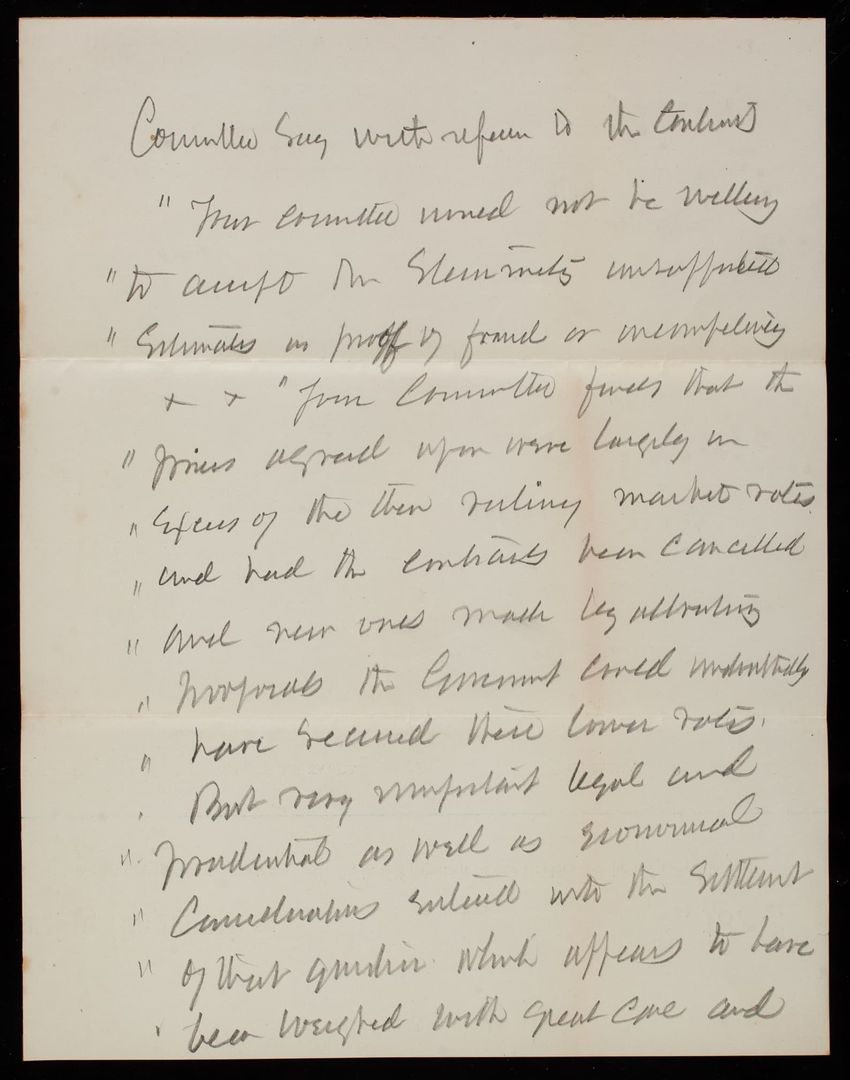 Committee Say with referen to the Contracts
" Your Committee would not be willing
" to accept the Steinmetz unsupported
" Estimates as proof of fraud or incompetency
x x " Your Committee finds that the
" prices agreed upon were largely in
" Excess of the then ruling market rates
" and had the contracts been cancelled
" and new ones made by advertising
" proposals the Government could undoubtedly
" have secured these lower rates.
" But very important legal and
" prudential as well as economical
" Considerations entered into the Settlement
" of that question which appears to have
" been weighed with great care and